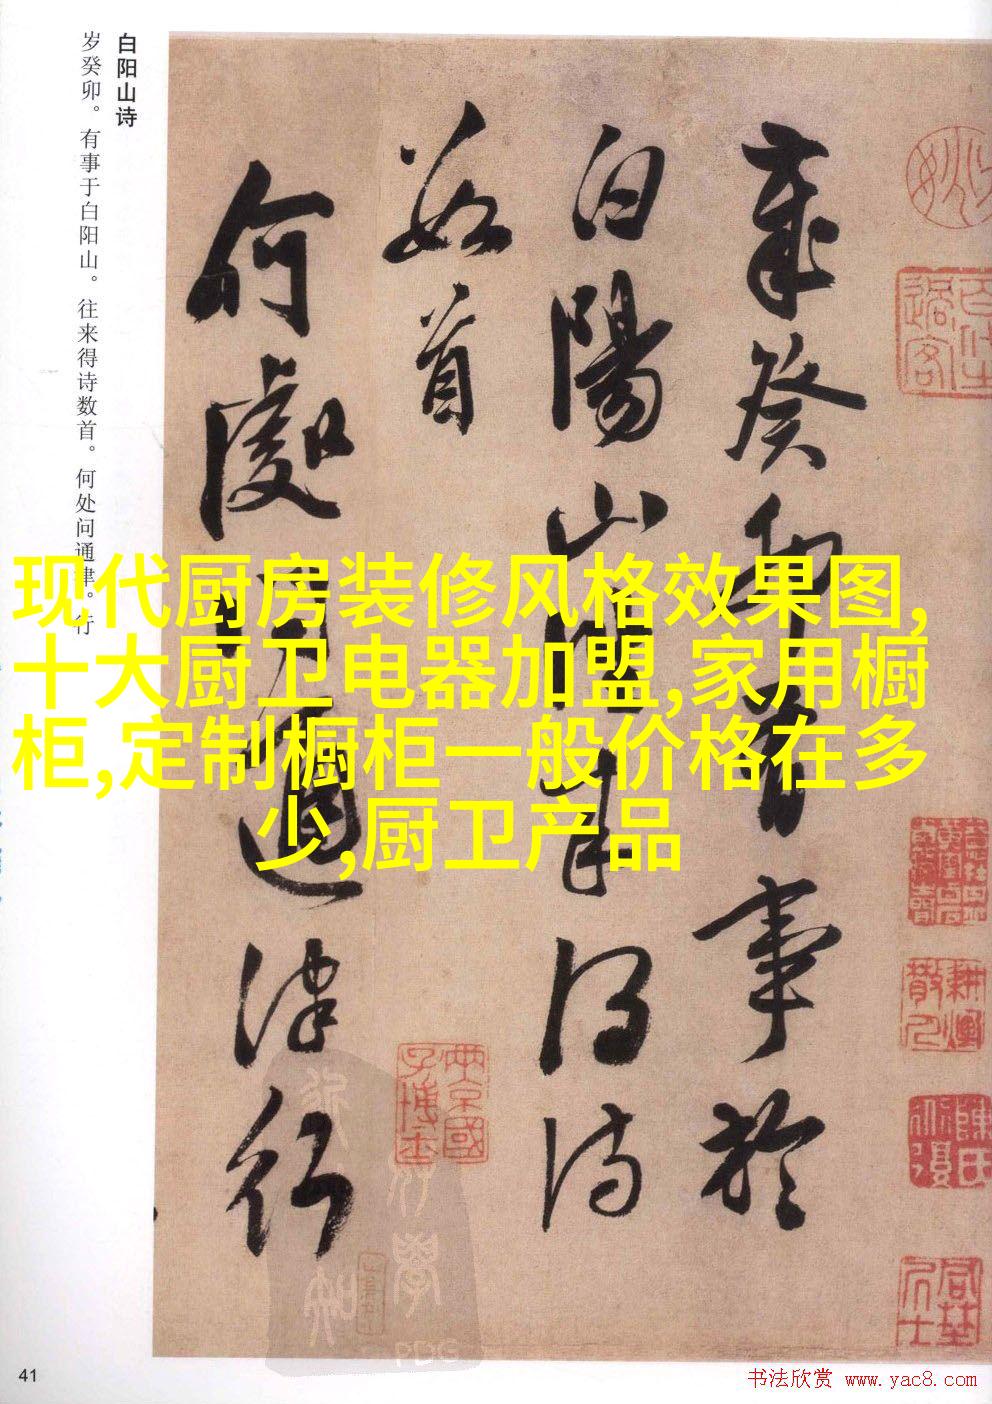 白阳山诗
岁癸卯。有事于白阳山。往来得诗数首。何处问通津。行
歲癸卯有事於
白陽山往来得诗
数首
何處問通津行
现代厨房装修风格效果图,
十大厨卫电器加盟,家用橱
柜,定制橱柜一般价格在多
少,厨卫产品
41
书法欣赏 www.yac8.com